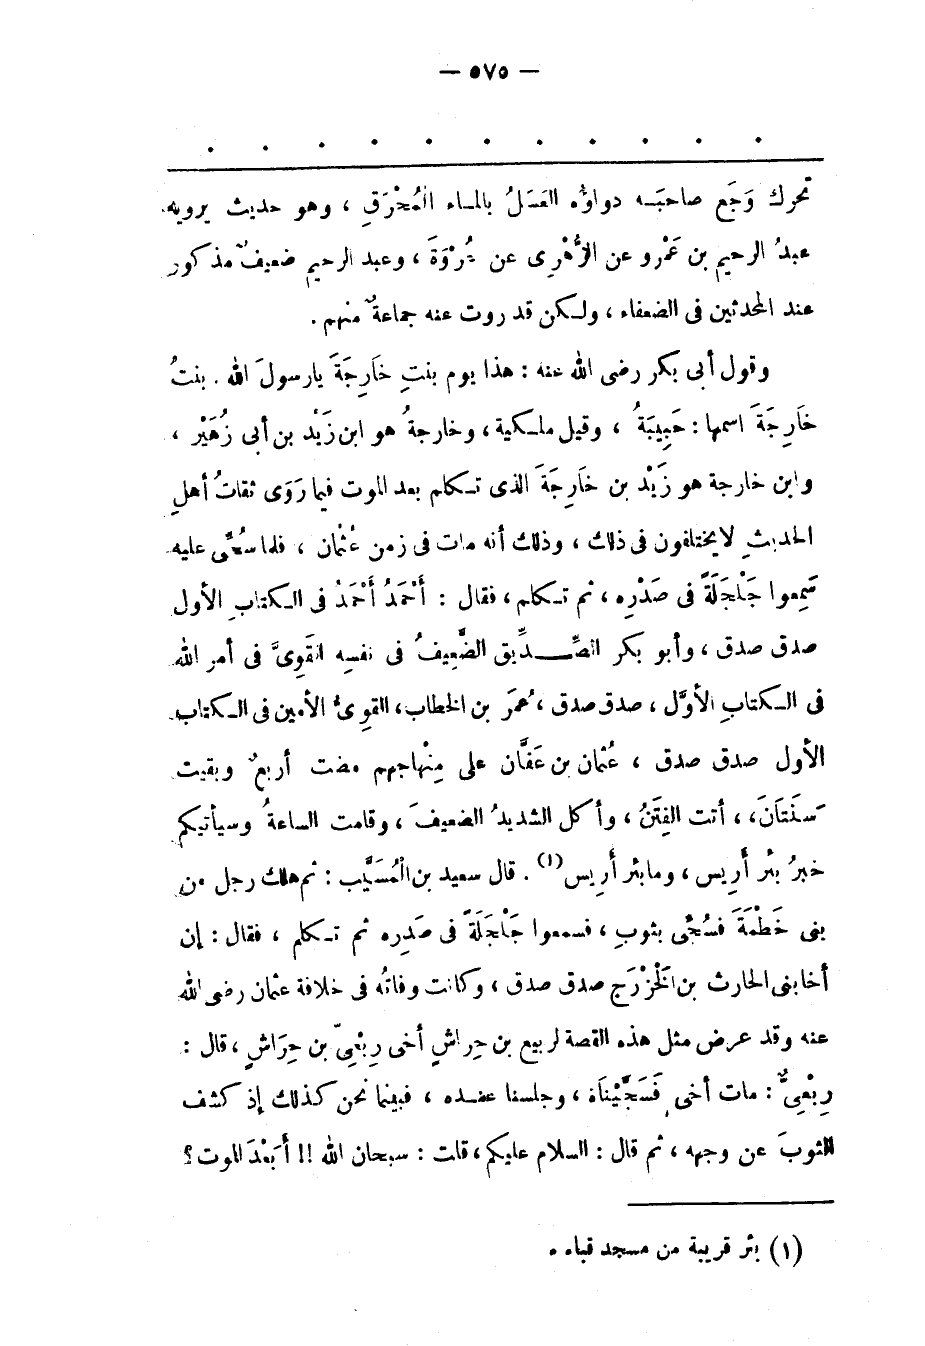 — ٥٧٥ —
تحرك وَجَع صاحبَـه دواؤُه العَسَلُ بالمـاء المُحْرَقِ ، وهو حديث يرويه
عبدُ الرحيم بن عَمْرو عن الزُّهْرِى عن عُرْوَةَ ، وعبد الرحيم ضعيفٌ مذكور
عند المحدثين فى الضعفاء ، ولـكن قد روت عنه جماعةٌ منهم .
وقول أبى بكر رضى الله عنه : هذا يوم بنتِ خَارِجَةَ يارسولَ الله . بنتُ
خَارِجَةَ اسمها : حَبِيبَةُ ، وقيل ملـكية ، وخارجةُ هو ابن زَيْد بن أبى زُهَيْر ،
وابن خارجة هو زَيْد بن خَارِجَةَ الذى تـكلم بعد الموت فيما رَوَى ثقاتُ أهلِ
الحديثِ لايختلفون فى ذلك ، وذلك أنه مات فى زمن عُثْمان ، فلما سُجِّى عليه
سَمِعوا جَلْجَلَةً فى صَدْرِه ، ثم تـكلم ، فقال : أَحْمَدُ أَحْمَدُ فى الـكتابِ الأول
صدق صدق ، وأبو بكر الصِّـــدِّيق الضَّعِيفُ فى نفسِه القَوِىُّ فى أمر الله
فى الـكتابِ الأوَّل ، صدق صدق ، عُمَرَ بن الخطاب ، القوِىُّ الأمين فى الـكتاب
الأول صدق صدق ، عُثْمان بن عَفَّان على مِنْهاجهم مضت أربعٌ وبقيت
سَنَتَان ، أتت الفِتَنُ ، وأكل الشديدُ الضعيفَ ، وقامت الساعةُ وسيأتيكم
خبرُ بئر أَرِيس ، ومابئر أَرِيس (١) . قال سعيد بن الْمُسَيَّب : ثم هلك رجل من
بنى خَطْمَةَ فسُجِّى بثوبٍ ، فسمعوا جَلْجَلَةً فى صَدِره ثم تـكلم ، فقال : إن
أخابنى الحارث بن الْخَزْرَج صدق صدق ، وكانت وفاتُه فى خلافة عثمان رضى الله
عنه وقد عرض مثل هذه القصة لربيع بن حِراشٍ أخى رِبْعِىّ بن حِرَاشٍ ، قال :
رِبْعِىٌّ : مات أخى فَسَجَّيْنَاه ، وجلسنا عنـده ، فبينما نحن كذلك إذ كشف
الثوبَ عن وجهه ، ثم قال : السلام عليكم ، قلت : سبحان الله !! أَبَعْدَ الموت ؟
(١) بئر قريبة من مسجد قباء .